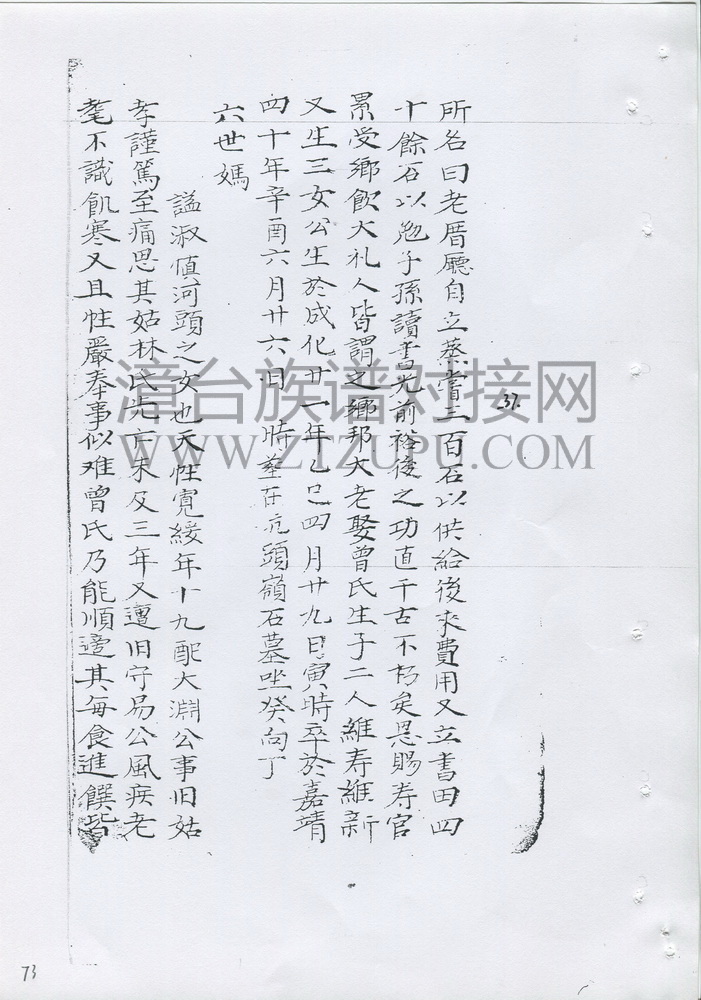 所名曰老厝廳自立蒸嘗二百石以供給後來費用又立書田四
十餘石以勉子孫讀書光前裕後之功直千古不朽矣恩賜寿官
累受鄉飲大礼人皆謂之鄉邦大老娶曾氏生子二人維寿維新
又生三女公生於成化廿一年乙巳四月廿九日寅時卒於嘉靖
四十年辛酉六月廿六日 時塟在坑頭嶺石墓坐癸向丁
六世媽
謚淑慎河頭之女也天性寬緩年十九配大淵公事旧姑
孝謹篤至痛思其姑林氏先亡未及三年又遭旧守易公風疾老
耄不識飢寒又且性嚴奉事似难曾氏乃能順適其每食進饌皆
37
漳台族谱对接网
WWW.ZTZUPU.COM
73